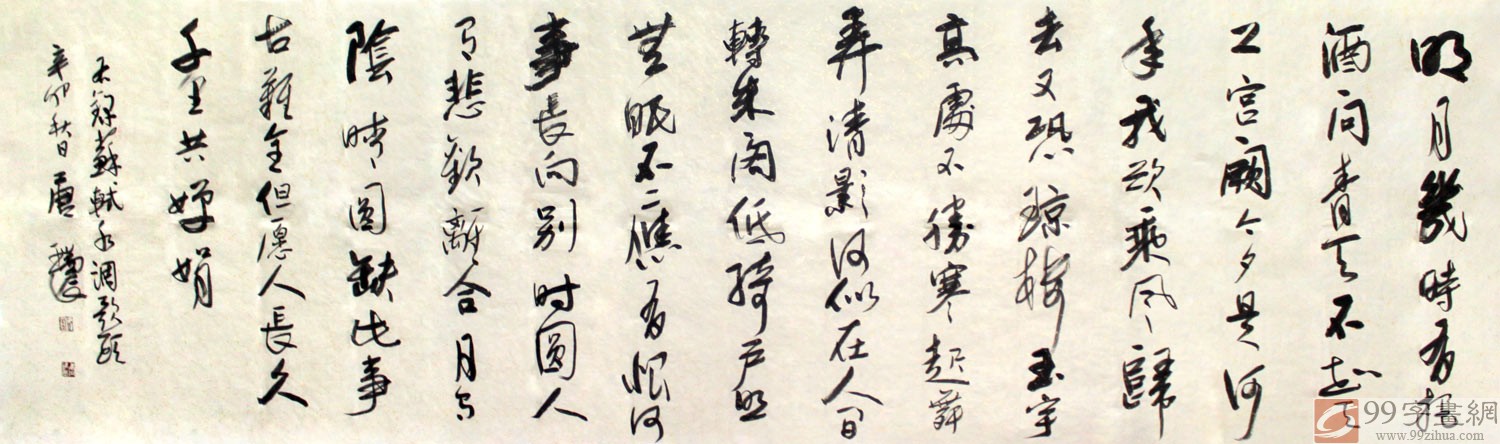 明月幾時有把
酒问青天不知天
上宫阙今夕是何
年我欲乘风歸
去又恐琼楼玉宇
高處不勝寒起舞
弄清影何似在人间
轉朱阁低綺户照
無眠不應有恨何
事長向别时圆人
有悲歡離合月有
陰晴圆缺此事
古難全但愿人長久
千里共嬋娟
右錄蘇軾水调歌頭
辛卯秋日唐
99字畫網
www.99zihua.com